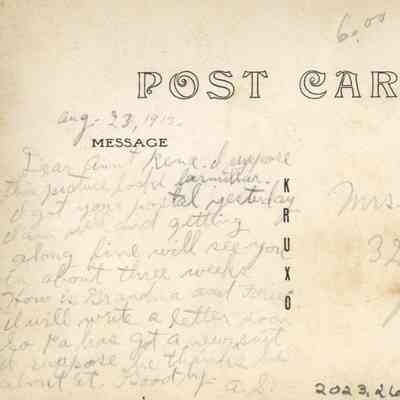 6.00
POST CAR
Aug. 23, 1912.
MESSAGE
Dear Aunt Rena. I suppose
this picture looks familiar.
I got your postal yesterday
I am well and getting
along fine will see you
in about three weeks.
How is Grandma and
I will write a letter soon
So Pa has got a new suit
I suppose he thanks
about it. Good by A. S.
KRUXO
Mrs.
32
2023.26